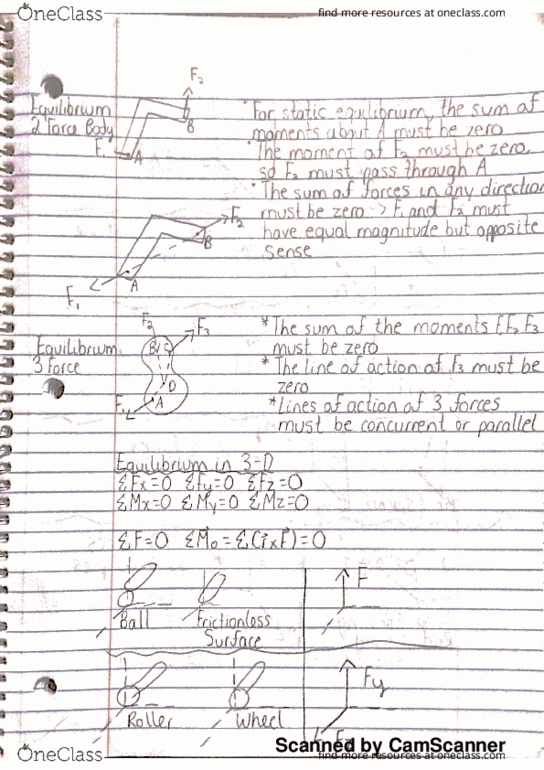 OneClass
find more resources at oneclass.com
F₂
Equilibrium
2 Force Body
B
F₁
A
• For static equilibrium, the sum of
moments about A must be zero
• The moment of F₂ must be zero,
so F₂ must pass through A
• The sum of forces in any direction
must be zero -> F₁ and F₂ must
have equal magnitude but opposite
sense
F₂
B
A
F₁
Equilibrium
3 Force
F₂
F₃
B
C
D
A
F₁
* The sum of the moments F₁F₂F₃
must be zero
* The line of action of F₃ must be
zero
* Lines of action of 3 forces
must be concurrent or parallel
Equilibrium in 3-D
ΣFx=0 ΣFy=0 ΣFz=0
ΣMx=0 ΣMy=0 ΣMz=0
ΣF=0 ΣM₀=Σ(r×F)=0
Ball
Frictionless
Surface
F
Roller
Wheel
Fy
Scanned by CamScanner
OneClass
find more resources at oneclass.com